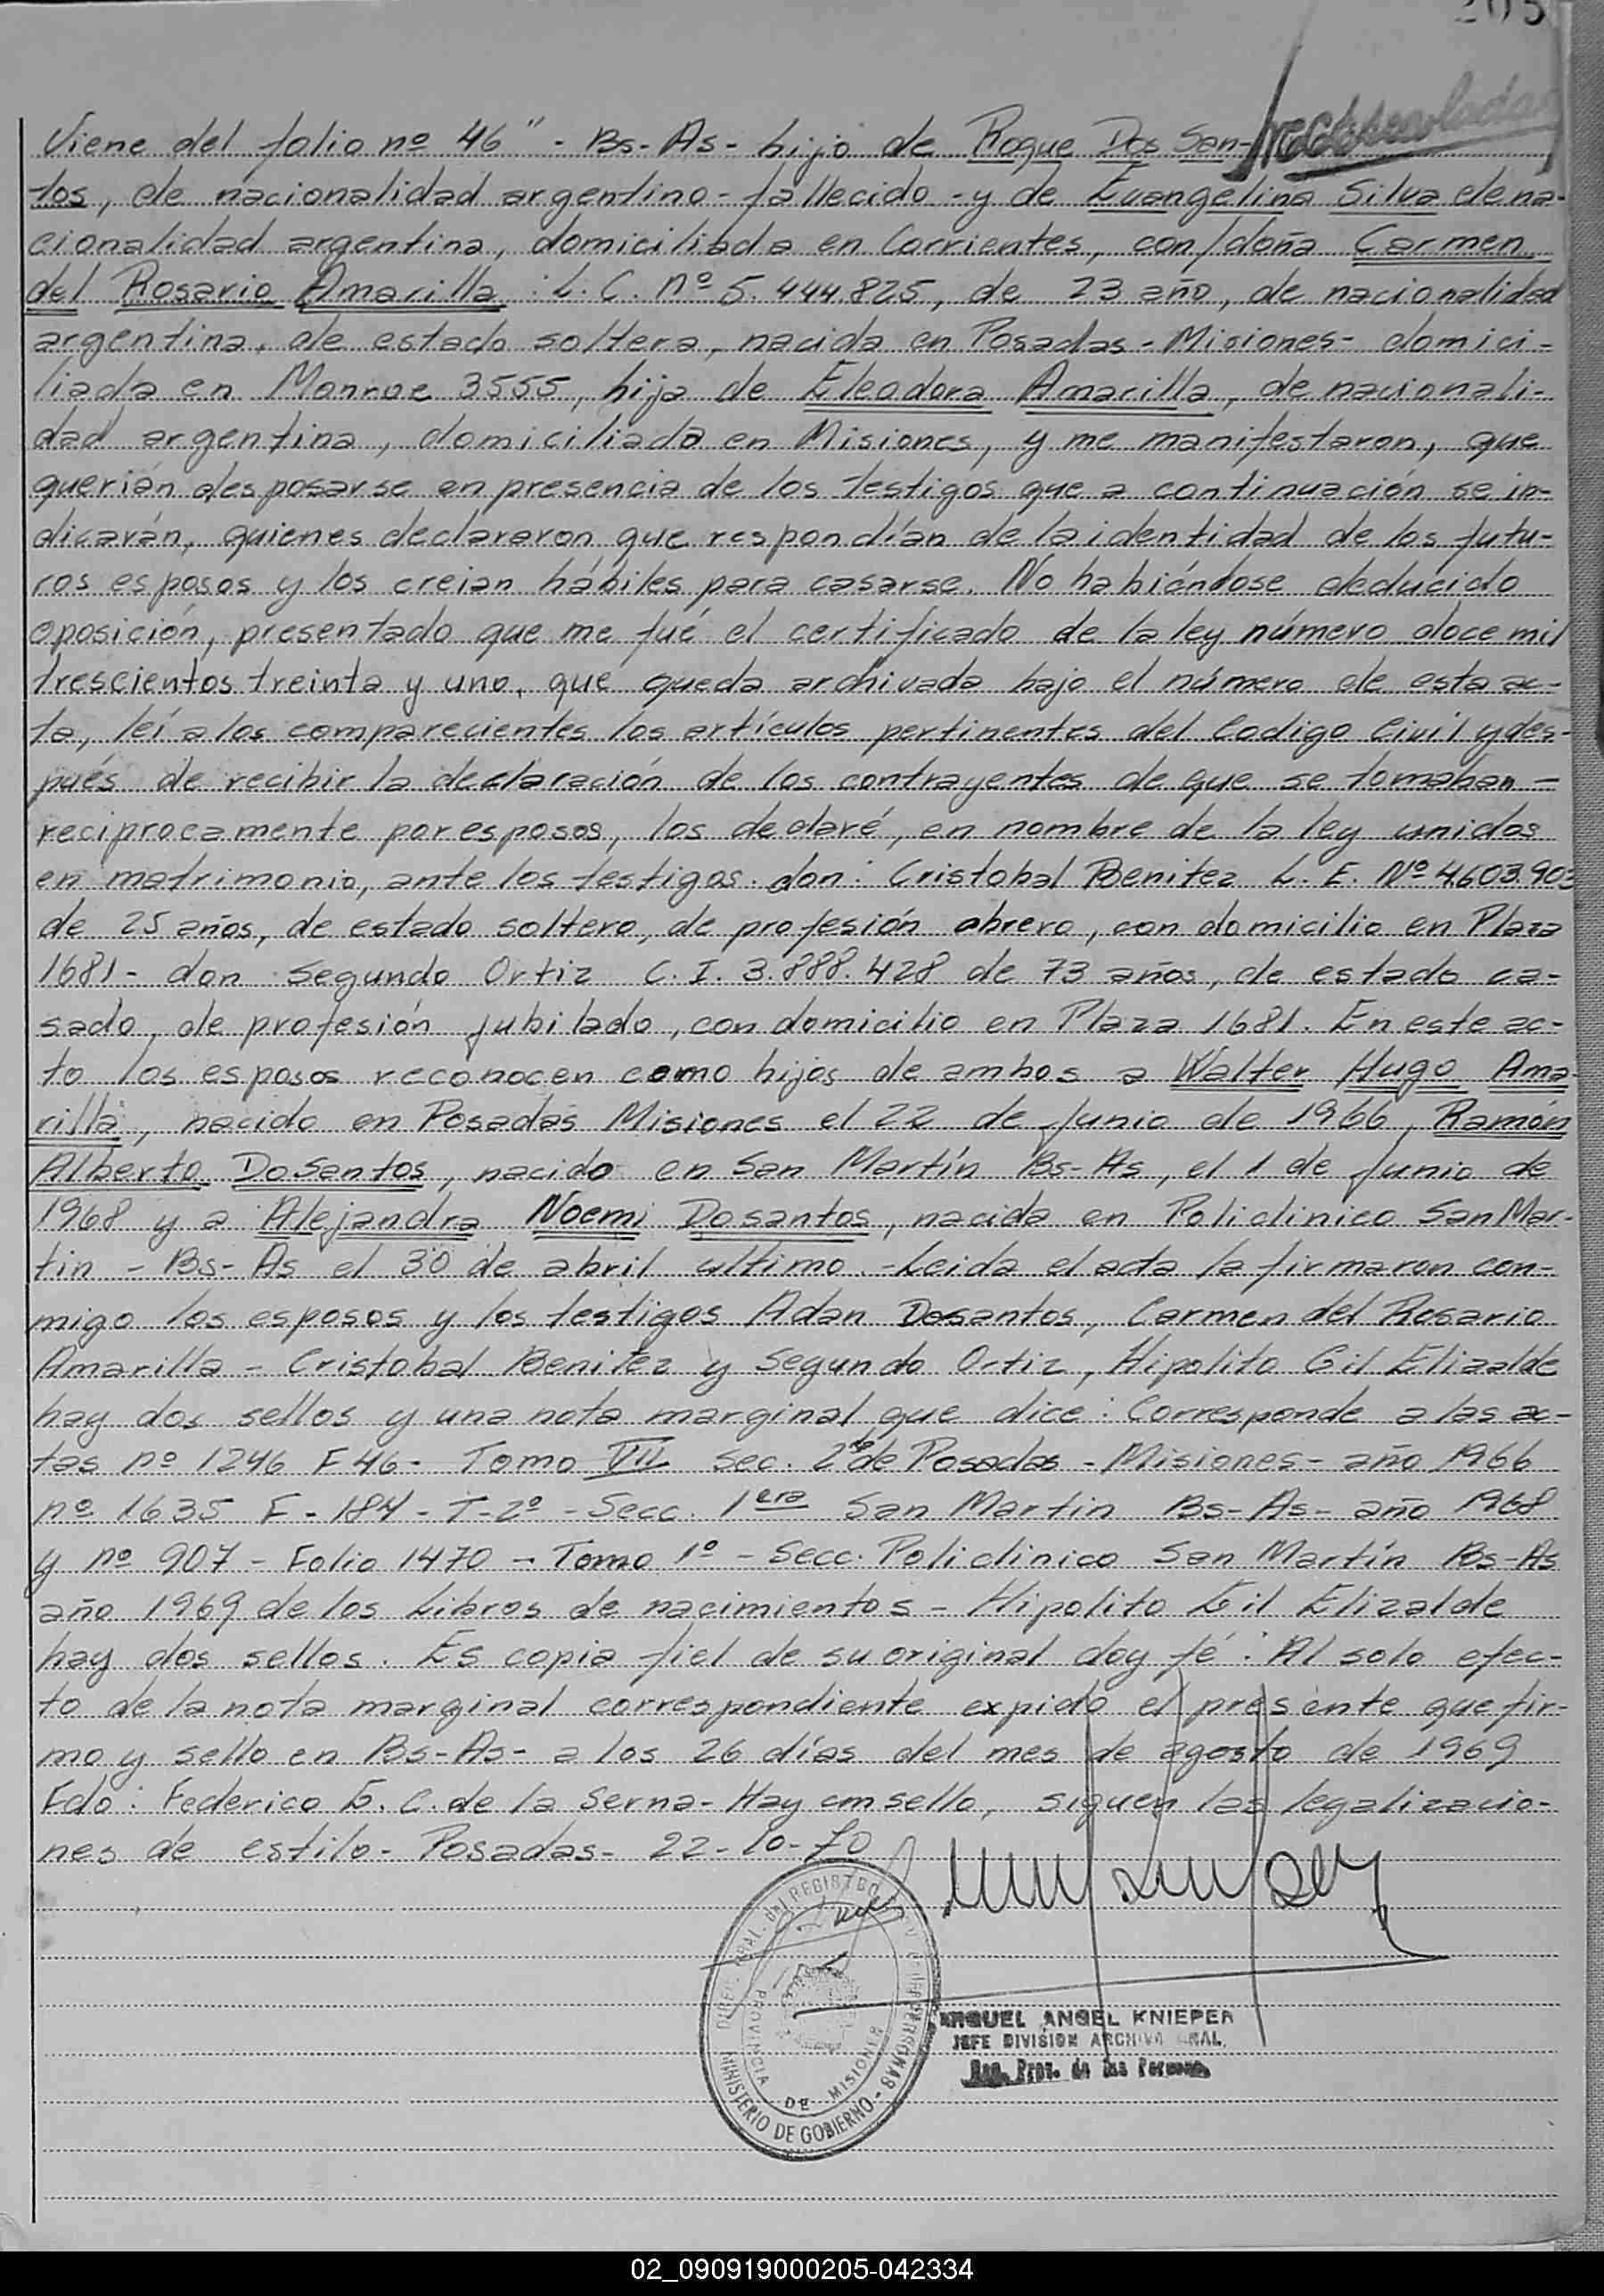 205
Viene del folio nº 46" - Bs-As- hijo de Roque Dos San-
tos, de nacionalidad argentino - fallecido - y de Evangelina Silva de na-
cionalidad argentina, domiciliada en Corrientes, con/doña Carmen
del Rosario Amarilla : L. C. nº 5.444.825, de 23 año, de nacionalidad
argentina, de estado soltera, nacida en Posadas - Misiones - domici-
liada en Monroe 3555, hija de Eleodora Amarilla, de nacionali-
dad argentina, domiciliada en Misiones, y me manifestaron, que
querián desposarse en presencia de los testigos que a continuación se in-
dicarán, quienes declararon que respondían de la identidad de los futu-
ros esposos y los creian hábiles para casarse. No habiéndose deducido
oposición, presentado que me fué el certificado de la ley número doce mil
trescientos treinta y uno, que queda archivada bajo el número de esta ac-
ta, leí a los comparecientes los artículos pertinentes del Codigo Civil y des-
pués de recibir la declaración de los contrayentes de que se tomaban -
reciprocamente por esposos, los declaré, en nombre de la ley unidos
en matrimonio, ante los testigos don: Cristobal Benitez L. E. Nº 4.603.903
de 25 años, de estado soltero, de profesión obrero, con domicilio en Plaza
1681 - don Segundo Ortiz C. I. 3.888.428 de 73 años, de estado ca-
sado, de profesión jubilado, con domicilio en Plaza 1681. En este ac-
to los esposos reconocen como hijos de ambos a Walter Hugo Ama-
rilla, nacido en Posadas Misiones el 22 de Junio de 1966, Ramón
Alberto Dosantos, nacido en San Martín Bs-As, el 1 de Junio de
1968 y a Alejandra Noemi Dosantos, nacida en Policlinico San Mar-
tin - Bs-As el 30 de abril ultimo.- Leida el acta la firmaron con-
migo los esposos y los testigos Adan Dosantos, Carmen del Rosario
Amarilla - Cristobal Benitez y Segundo Ortiz, Hipolito Gil Elizalde
hay dos sellos y una nota marginal que dice: Corresponde a las ac-
tas nº 1246 F 46 - Tomo VII Sec. 2ª de Posadas - Misiones - año 1966
nº 1635 F - 184 - T-2º - Secc. 1era San Martin Bs-As- año 1968
y nº 907 - Folio 1470 - Tomo 1º - Secc. Policlinico San Martín Bs-As
año 1969 de los Libros de nacimientos - Hipolito Gil Elizalde
hay dos sellos. Es copia fiel de su original doy fé. Al solo efec-
to de la nota marginal correspondiente expido el presente que fir-
mo y sello en Bs-As- a los 26 días del mes de agosto de 1969
Fdo: Federico G. C. de la Serna - Hay un sello, siguen las legalizacio-
nes de estilo - Posadas - 22-10-70
MIGUEL ANGEL KNIEPER
JEFE DIVISION ARCHIVO GRAL.
Reg. Prov. de las Personas
MINISTERIO DE GOBIERNO
PROVINCIA DE MISIONES
02_090919000205-042334